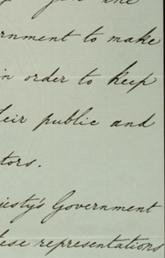 the
rnment to make
in order to keep
heir public and
tors.
jesty's Government
hese representations